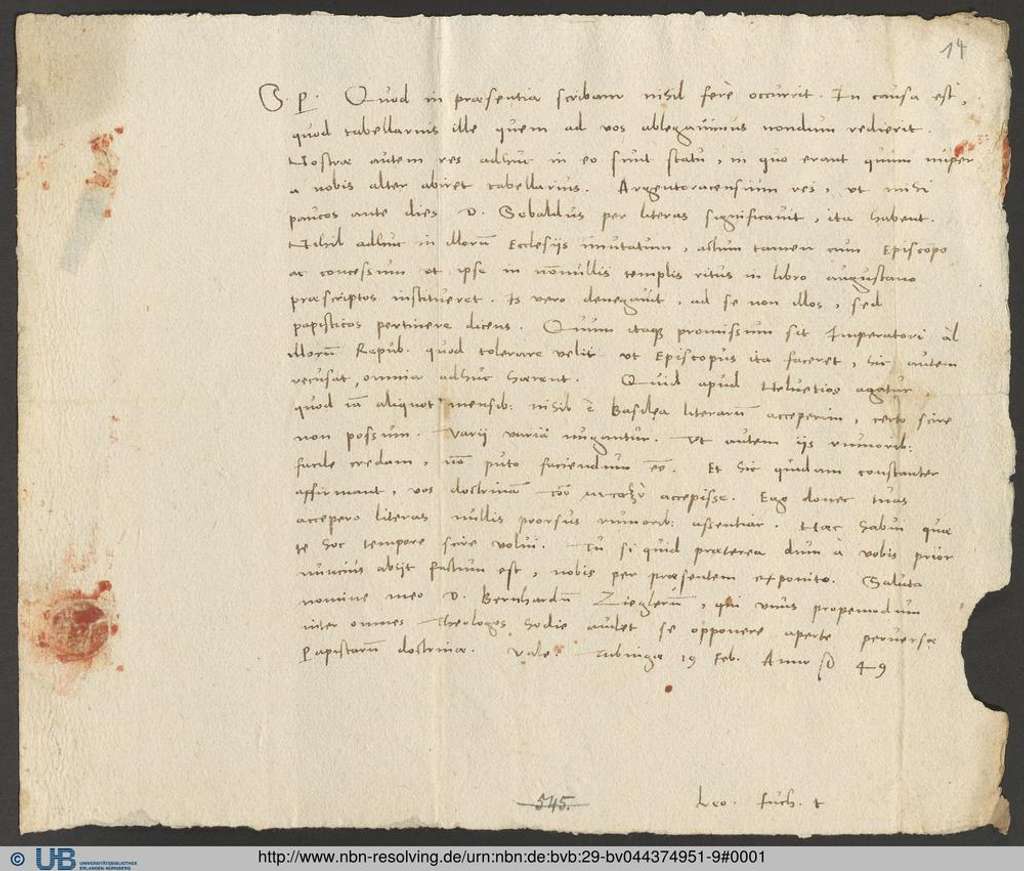 14
S. P. Quod in præsentia scribam nihil ferè occurrit. In causa est,
quod tabellarius ille quem ad vos ablegavimus nondum redierit.
Nostræ autem res adhuc in eo sunt statu, in quo erant quum nuper
a nobis alter abiret tabellarius. Argentoracensium res, ut mihi
paucos ante dies D. Sebaldus per literas significavit, ita habent.
Nihil adhuc in illorũ Ecclesiis immutatum, actum tamen cum Episcopo
ac concessum ut ipse in nõnullis templis ritus in libro augustano
præscriptos institueret. Is vero denegavit, ad se non illos, sed
papisticos pertinere dicens. Quum itaq promissum sit Imperatori ab
illorũ Repub. quod tolerare velit ut Episcopus ita faceret, hic autem
recusat, omnia adhuc hærent. Quid apud Helvetios agatur
quod iã aliquot mensib: nihil è Basilea literarũ acceperim, certo scire
non possum. Varii varia nugantur. Ut autem iis rumorib:
facile credam, nõ puto faciendum ee. Et hic quidam constanter
affirmant, vos doctrinã accepisse. Ego donec tuas
accepero literas nullis prorsus rumorib: assentiar. Hæc habui quæ
te hoc tempore scire volui. Tu si quid præterea dum à vobis prior
nuncius abijt factum est, nobis per præsentem exponito. Saluta
nomine meo D. Bernhardũ Zieglerũ, qui unus propemodum
inter omnes Theologos hodie audet se opponere aperte perversæ
Papistarũ doctrinæ. Vale. Tubingæ 19 Feb. Anno 49
545.
Leo. Fuch. t
© UB UNIVERSITÄTSBIBLIOTHEK
ERLANGEN-NÜRNBERG
http://www.nbn-resolving.de/urn:nbn:de:bvb:29-bv044374951-9#0001